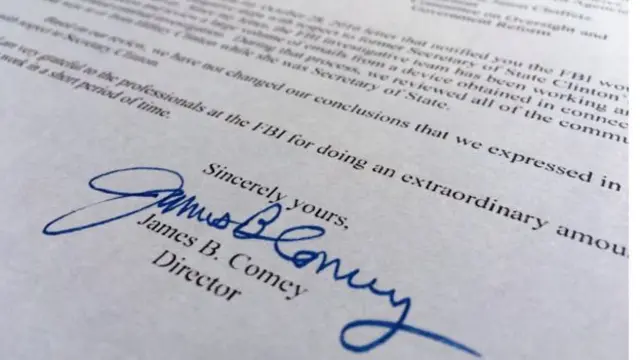 Committee on Oversight and
Government Reform
October 28, 2016 letter that notified you the FBI
with respect to former Secretary of State Clinton's
the FBI investigative team has been working
from a device obtained in
During that process, we reviewed all of the
Hillary Clinton while she was Secretary of State.
Based on our review, we have not changed our conclusions that we expressed in
with respect to Secretary Clinton.
I am very grateful to the professionals at the FBI for doing an extraordinary
work in a short period of time.
Sincerely yours,
James B Comey
James B. Comey
Director